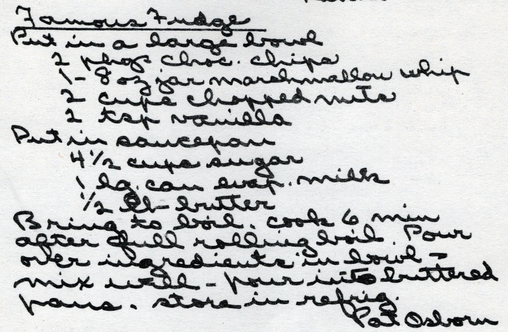 Famous Fudge
Put in a large bowl
2 pkgs choc. chips
1 - 8 oz jar marshmallow whip
2 cups chopped nuts
2 tsp vanilla
Put in saucepan
4 1/2 cups sugar
1 lg. can evap. milk
1/2 lb butter
Bring to boil. cook 6 min
after full rolling boil. Pour
over ingredients in bowl -
mix well - pour into buttered
pans. store in refrig.
Pat Osborn